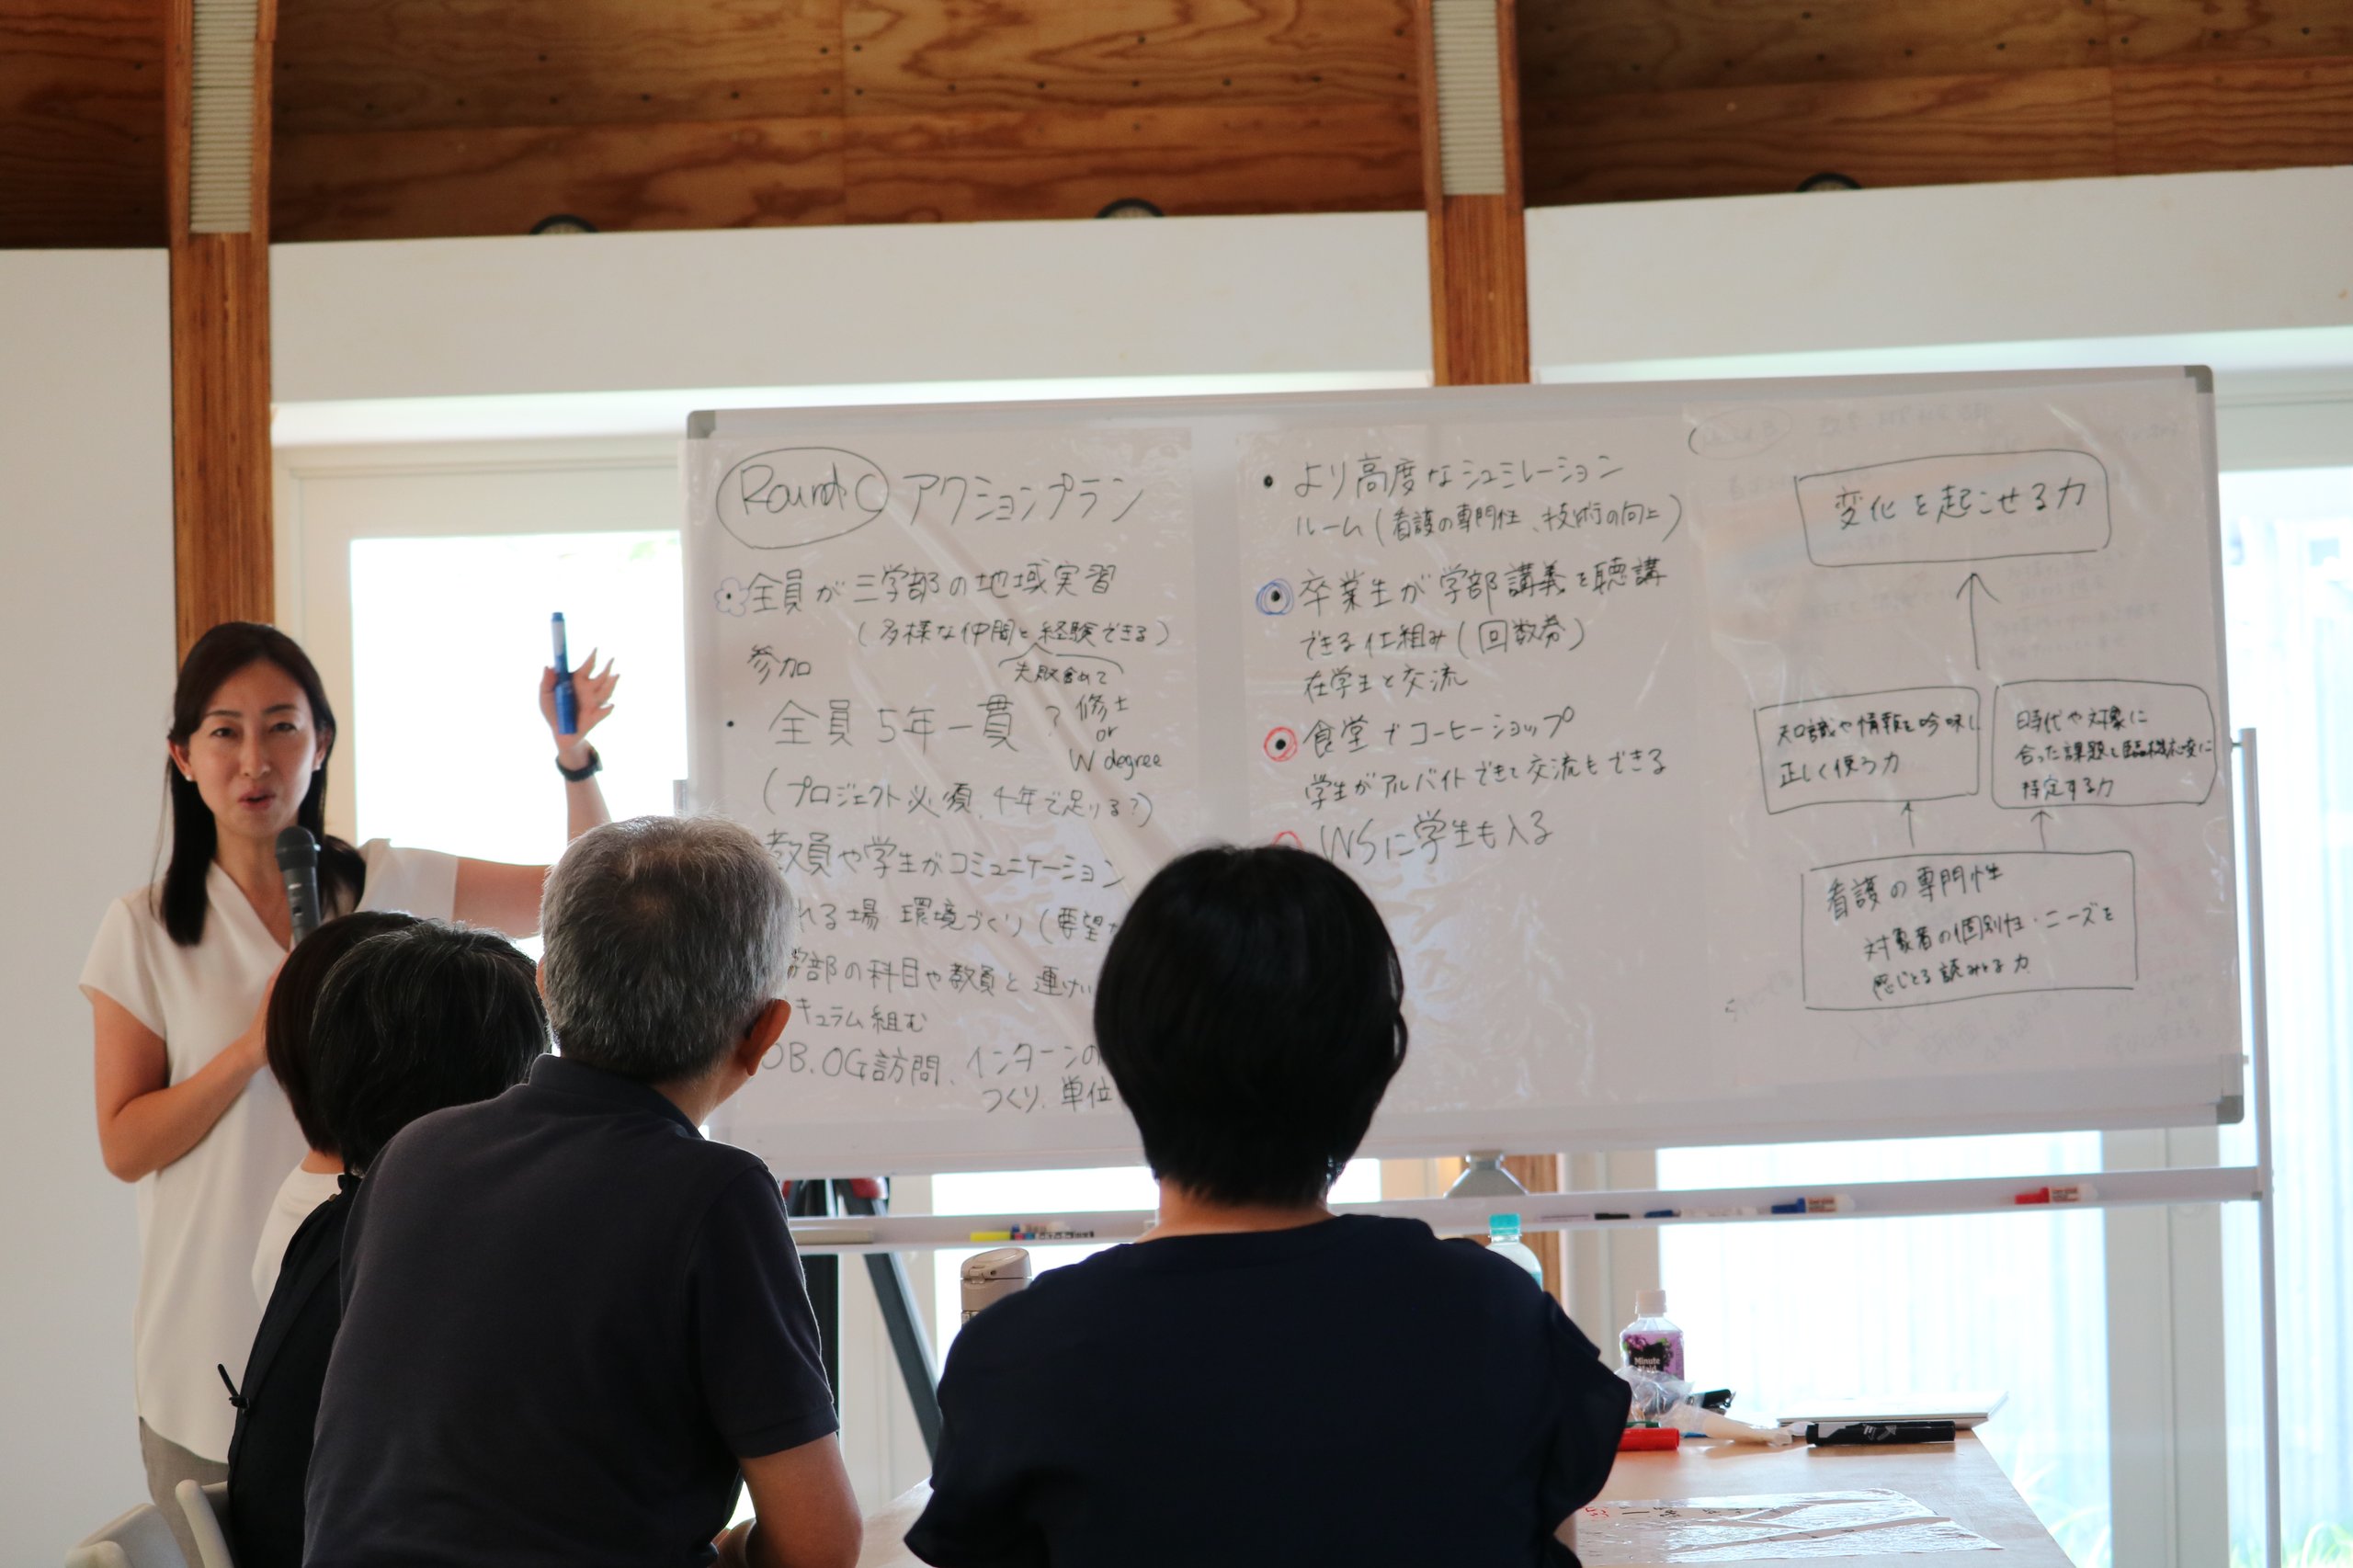 Round C アクションプラン
全員が三学部の地域実習
(多様な仲間と経験できる)
失敗含めて
参加
・全員5年一貫? 修士
or
W degree
(プロジェクト必須、4年で足りる?)
教員や学生がコミュニケーション
れる場 環境づくり(要望
学部の科目や教員と連けい
キュラム組む
OB.OG訪問、インターンの
つくり、単位
・より高度なシュミレーション
ルーム(看護の専門性、技術の向上)
卒業生が学部講義を聴講
できる仕組み(回数券)
在学生と交流
食堂でコーヒーショップ
学生がアルバイトできて交流もできる
WSに学生も入る
変化を起こせる力
知識や情報を吟味し
正しく使う力
時代や対象に
合った課題を臨機応変に
特定する力
看護の専門性
対象者の個別性・ニーズを
感じとる読みとる力
Minute